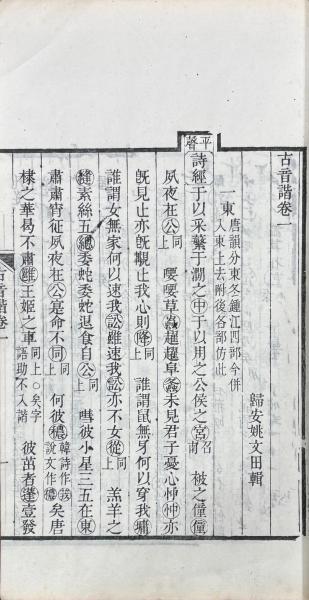 古音諧卷一
歸安姚文田輯
一東
唐韻分東冬鍾江四部今併
入東上去附後各部仿此
平聲
詩經于以采蘩于澗之中于以用之公侯之宮
召南
被之僮僮
夙夜在公
同上
喓喓草蟲趯趯阜螽未見君子憂心忡忡亦
既見止亦既覯止我心則降
同上
誰謂鼠無牙何以穿我墉
誰謂女無家何以速我訟雖速我訟亦不女從
同上
羔羊之
縫素絲五總委蛇委蛇退食自公
同上
嘒彼小星三五在東
肅肅宵征夙夜在公寔命不同
同上
何彼穠
韓詩作茙
說文作襛
矣唐
棣之華曷不肅雝王姬之車
同上○矣字
語助不入諧
彼茁者蓬壹發
古音諧卷一
一